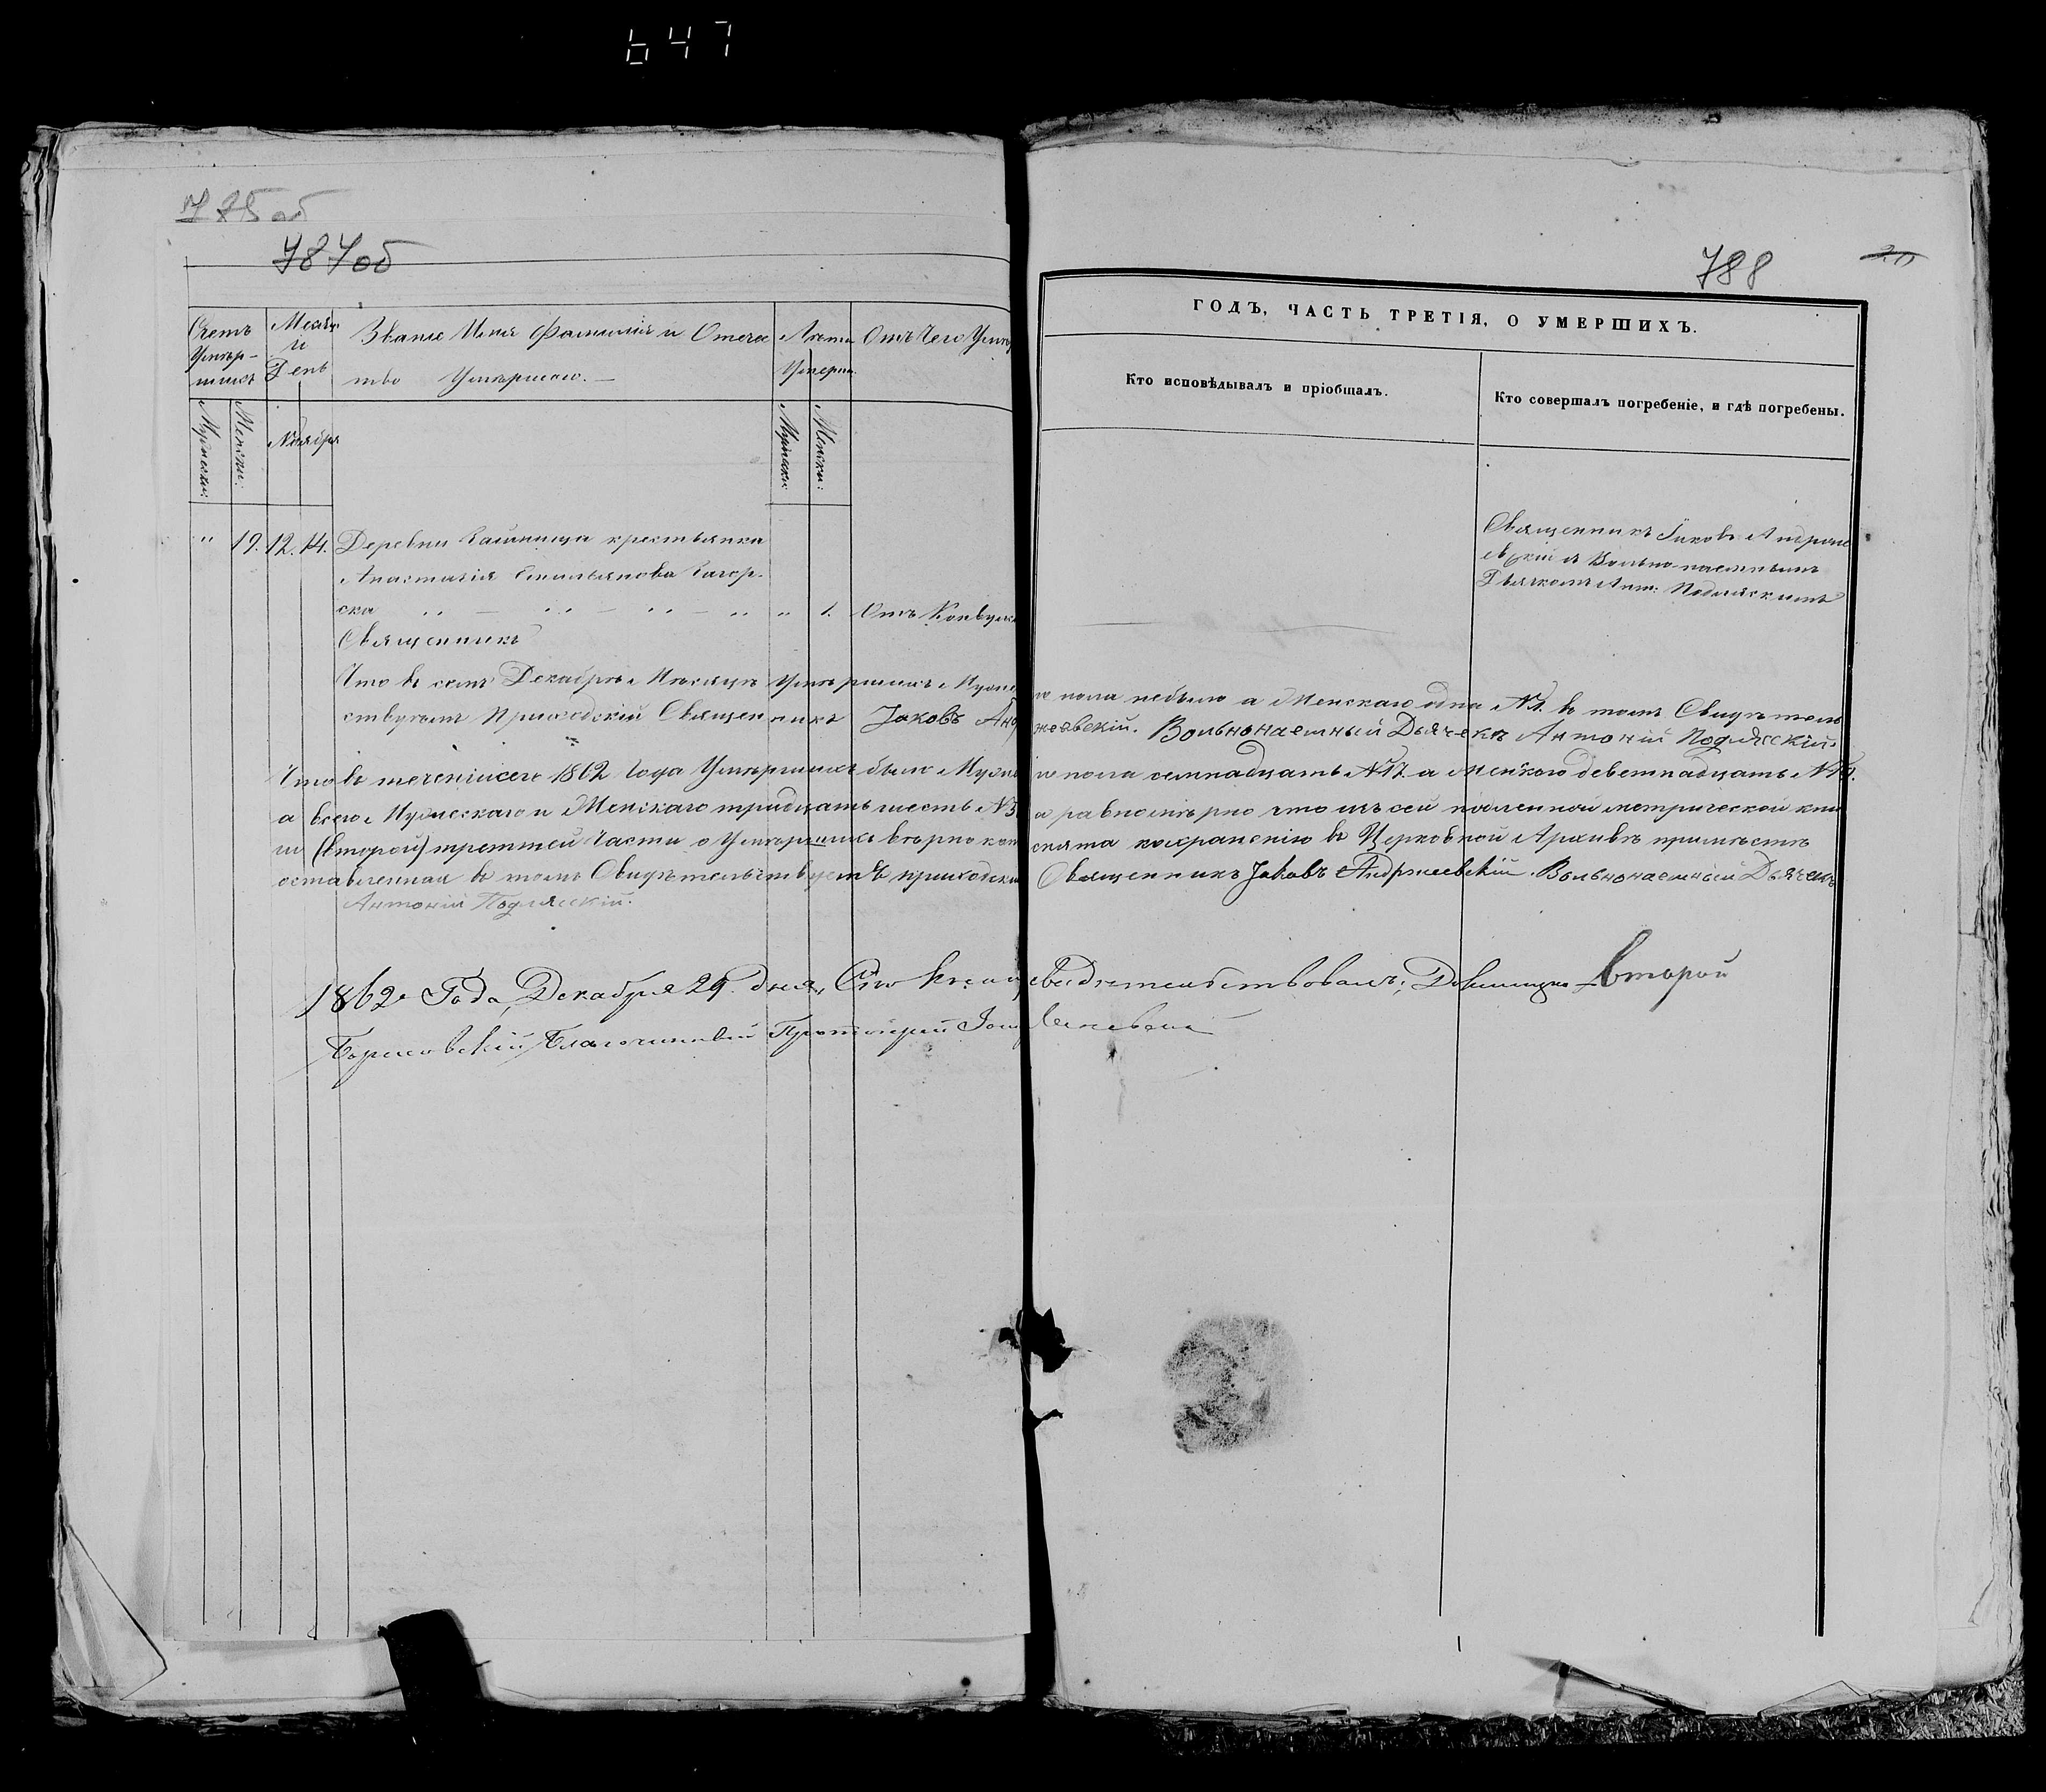 647
787об
788
ГОДЪ, ЧАСТЬ ТРЕТІЯ, О УМЕРШИХЪ.
Счетъ Умѣр-шихъ
Месяцъ и День
Званіе Имя Фамилія и Отечество Умѣршаго. —
Лѣта Умерш.
Отъ Чего Умѣр
Кто исповѣдывалъ и пріобщалъ.
Кто совершалъ погребеніе, и гдѣ погребены.
Мужески:
Женски:
Ноября
Мужески:
Женски:
" 19. 12. 14. Деревни крестьянка
Анастасія Емильянова
ска " — " — " — " " 1. Отъ Конвул
Священникъ Іаковъ Андрже
евскій и Вольнонаемнымъ
Дьячкомъ Ант: Подляскимъ
Священникъ
Что въ семъ Декабрѣ Мѣсяцѣ Умѣршихъ Мужес го пола небыло а Женскаго одна №1. въ томъ Свидѣтель
ствуемъ Приходскій Священникъ Јаковъ Анд жеевскій. Вольнонаемный Дьячекъ Антоній Подляскій.
Что въ теченіи сего 1862 Года Умѣршихъ было Мужес го пола семнадцать №17. а Женскаго девятнадцать №19.
а всего Мужескаго и Женскаго тридцать шесть №3 а равномѣрно что изъ сей подленной метрической кни
ги (второй) треттей Части о Умѣршихъ вѣрно коп снята кохраненію въ Церковной Архивѣ
оставленная въ томъ Свидѣтельствуемъ приходскі Священникъ Јаковъ Андржеевскій. Вольнонаемный Дьячекъ
Антоній Подляскій.
1862 Года, Декабря 29. дня, Сію книгу свидѣтельствовалъ: второй
Борисовскій Благочинный Протоіерей